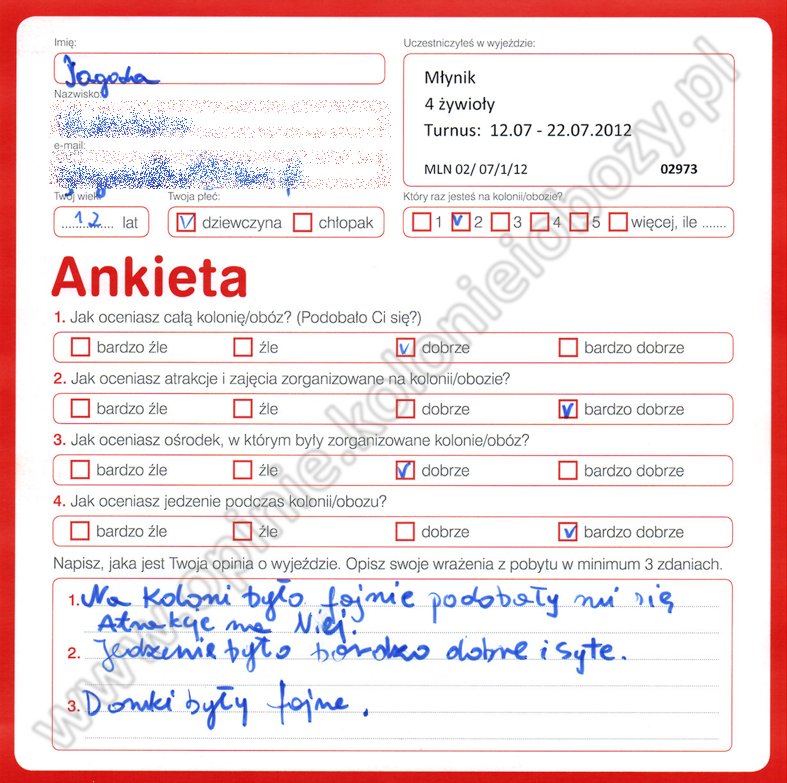 Imię:
Jagoda
Uczestniczyłeś w wyjeździe:
Młynik
4 żywioły
Turnus: 12.07 - 22.07.2012
MLN 02/ 07/1/12 02973
Nazwisko:
e-mail:
Twój wiek:
12 lat
Twoja płeć:
dziewczyna chłopak
Który raz jesteś na kolonii/obozie?
1 2 3 4 5 więcej, ile .......
Ankieta
1. Jak oceniasz całą kolonię/obóz? (Podobało Ci się?)
bardzo źle źle dobrze bardzo dobrze
2. Jak oceniasz atrakcje i zajęcia zorganizowane na kolonii/obozie?
bardzo źle źle dobrze bardzo dobrze
3. Jak oceniasz ośrodek, w którym były zorganizowane kolonie/obóz?
bardzo źle źle dobrze bardzo dobrze
4. Jak oceniasz jedzenie podczas kolonii/obozu?
bardzo źle źle dobrze bardzo dobrze
Napisz, jaka jest Twoja opinia o wyjeździe. Opisz swoje wrażenia z pobytu w minimum 3 zdaniach.
1. Na Koloni było fajnie podobały mi się
Atrakcje na Niej.
2. Jedzenie było bardzo dobre i syte.
3. Domki były fajne.
www.opinie.kolonieiobozy.pl